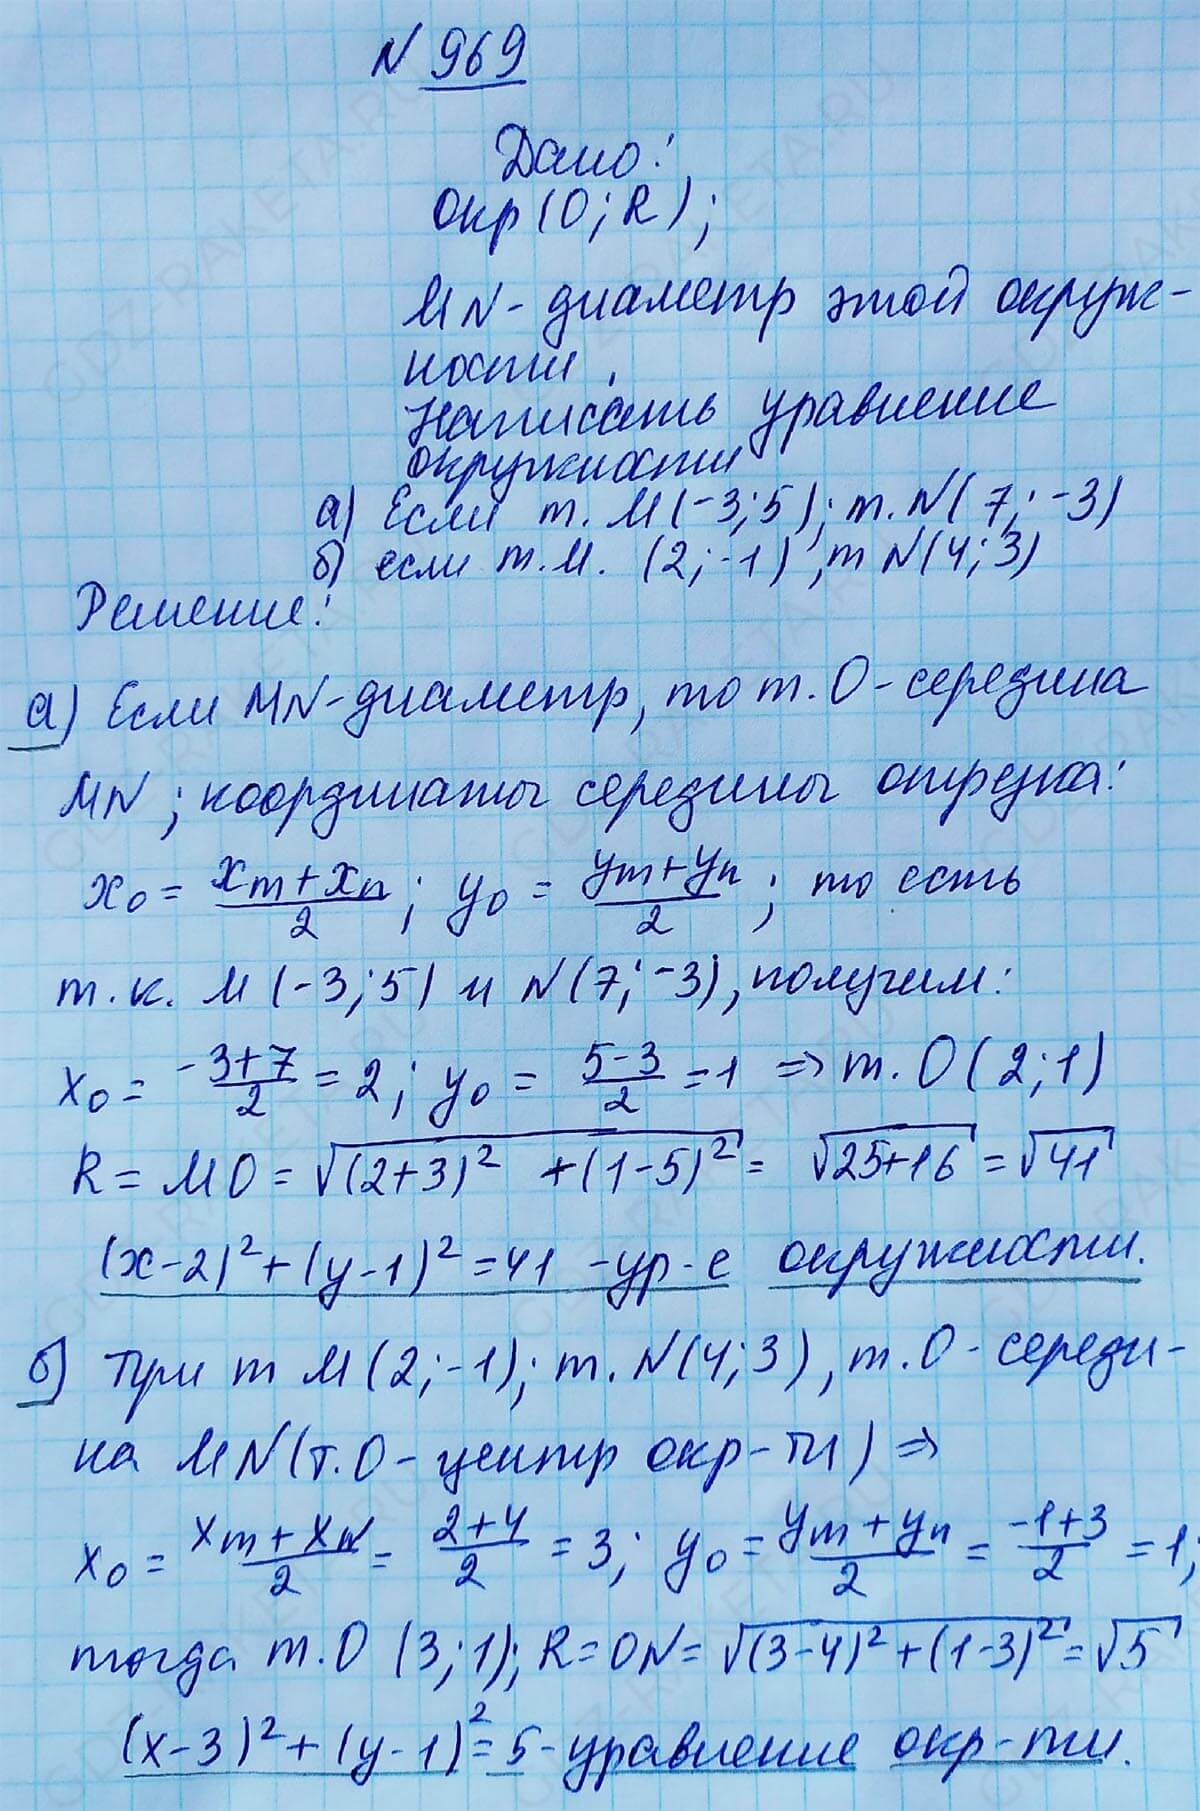 N 969
Дано:
Окр(O; R);
MN - диаметр этой окруж-
ности.
Написать уравнение
окружности
а) Если т. M(-3; 5); т. N(7; -3)
б) если т. M. (2; -1), т N(4; 3)
Решение:
а) Если MN - диаметр, то т. O - середина
MN; координаты середины отрезка:
x₀ = (xm + xn)/2; y₀ = (ym + yn)/2; то есть
т.к. M(-3; 5) и N(7; -3), получим:
x₀ = (-3+7)/2 = 2; y₀ = (5-3)/2 = 1 => т. O(2; 1)
R = MO = √((2+3)² + (1-5)²) = √(25+16) = √41
(x-2)² + (y-1)² = 41 - ур-е окружности.
б) При т M(2; -1); т. N(4; 3), т. O - середи-
на MN (т. O - центр окр-ти) =>
x₀ = (xm + xN)/2 = (2+4)/2 = 3; y₀ = (ym + yn)/2 = (-1+3)/2 = 1;
тогда т. O (3; 1); R = ON = √((3-4)² + (1-3)²) = √5
(x-3)² + (y-1)² = 5 - уравнение окр-ти.
GDZ-RAKETA.RU